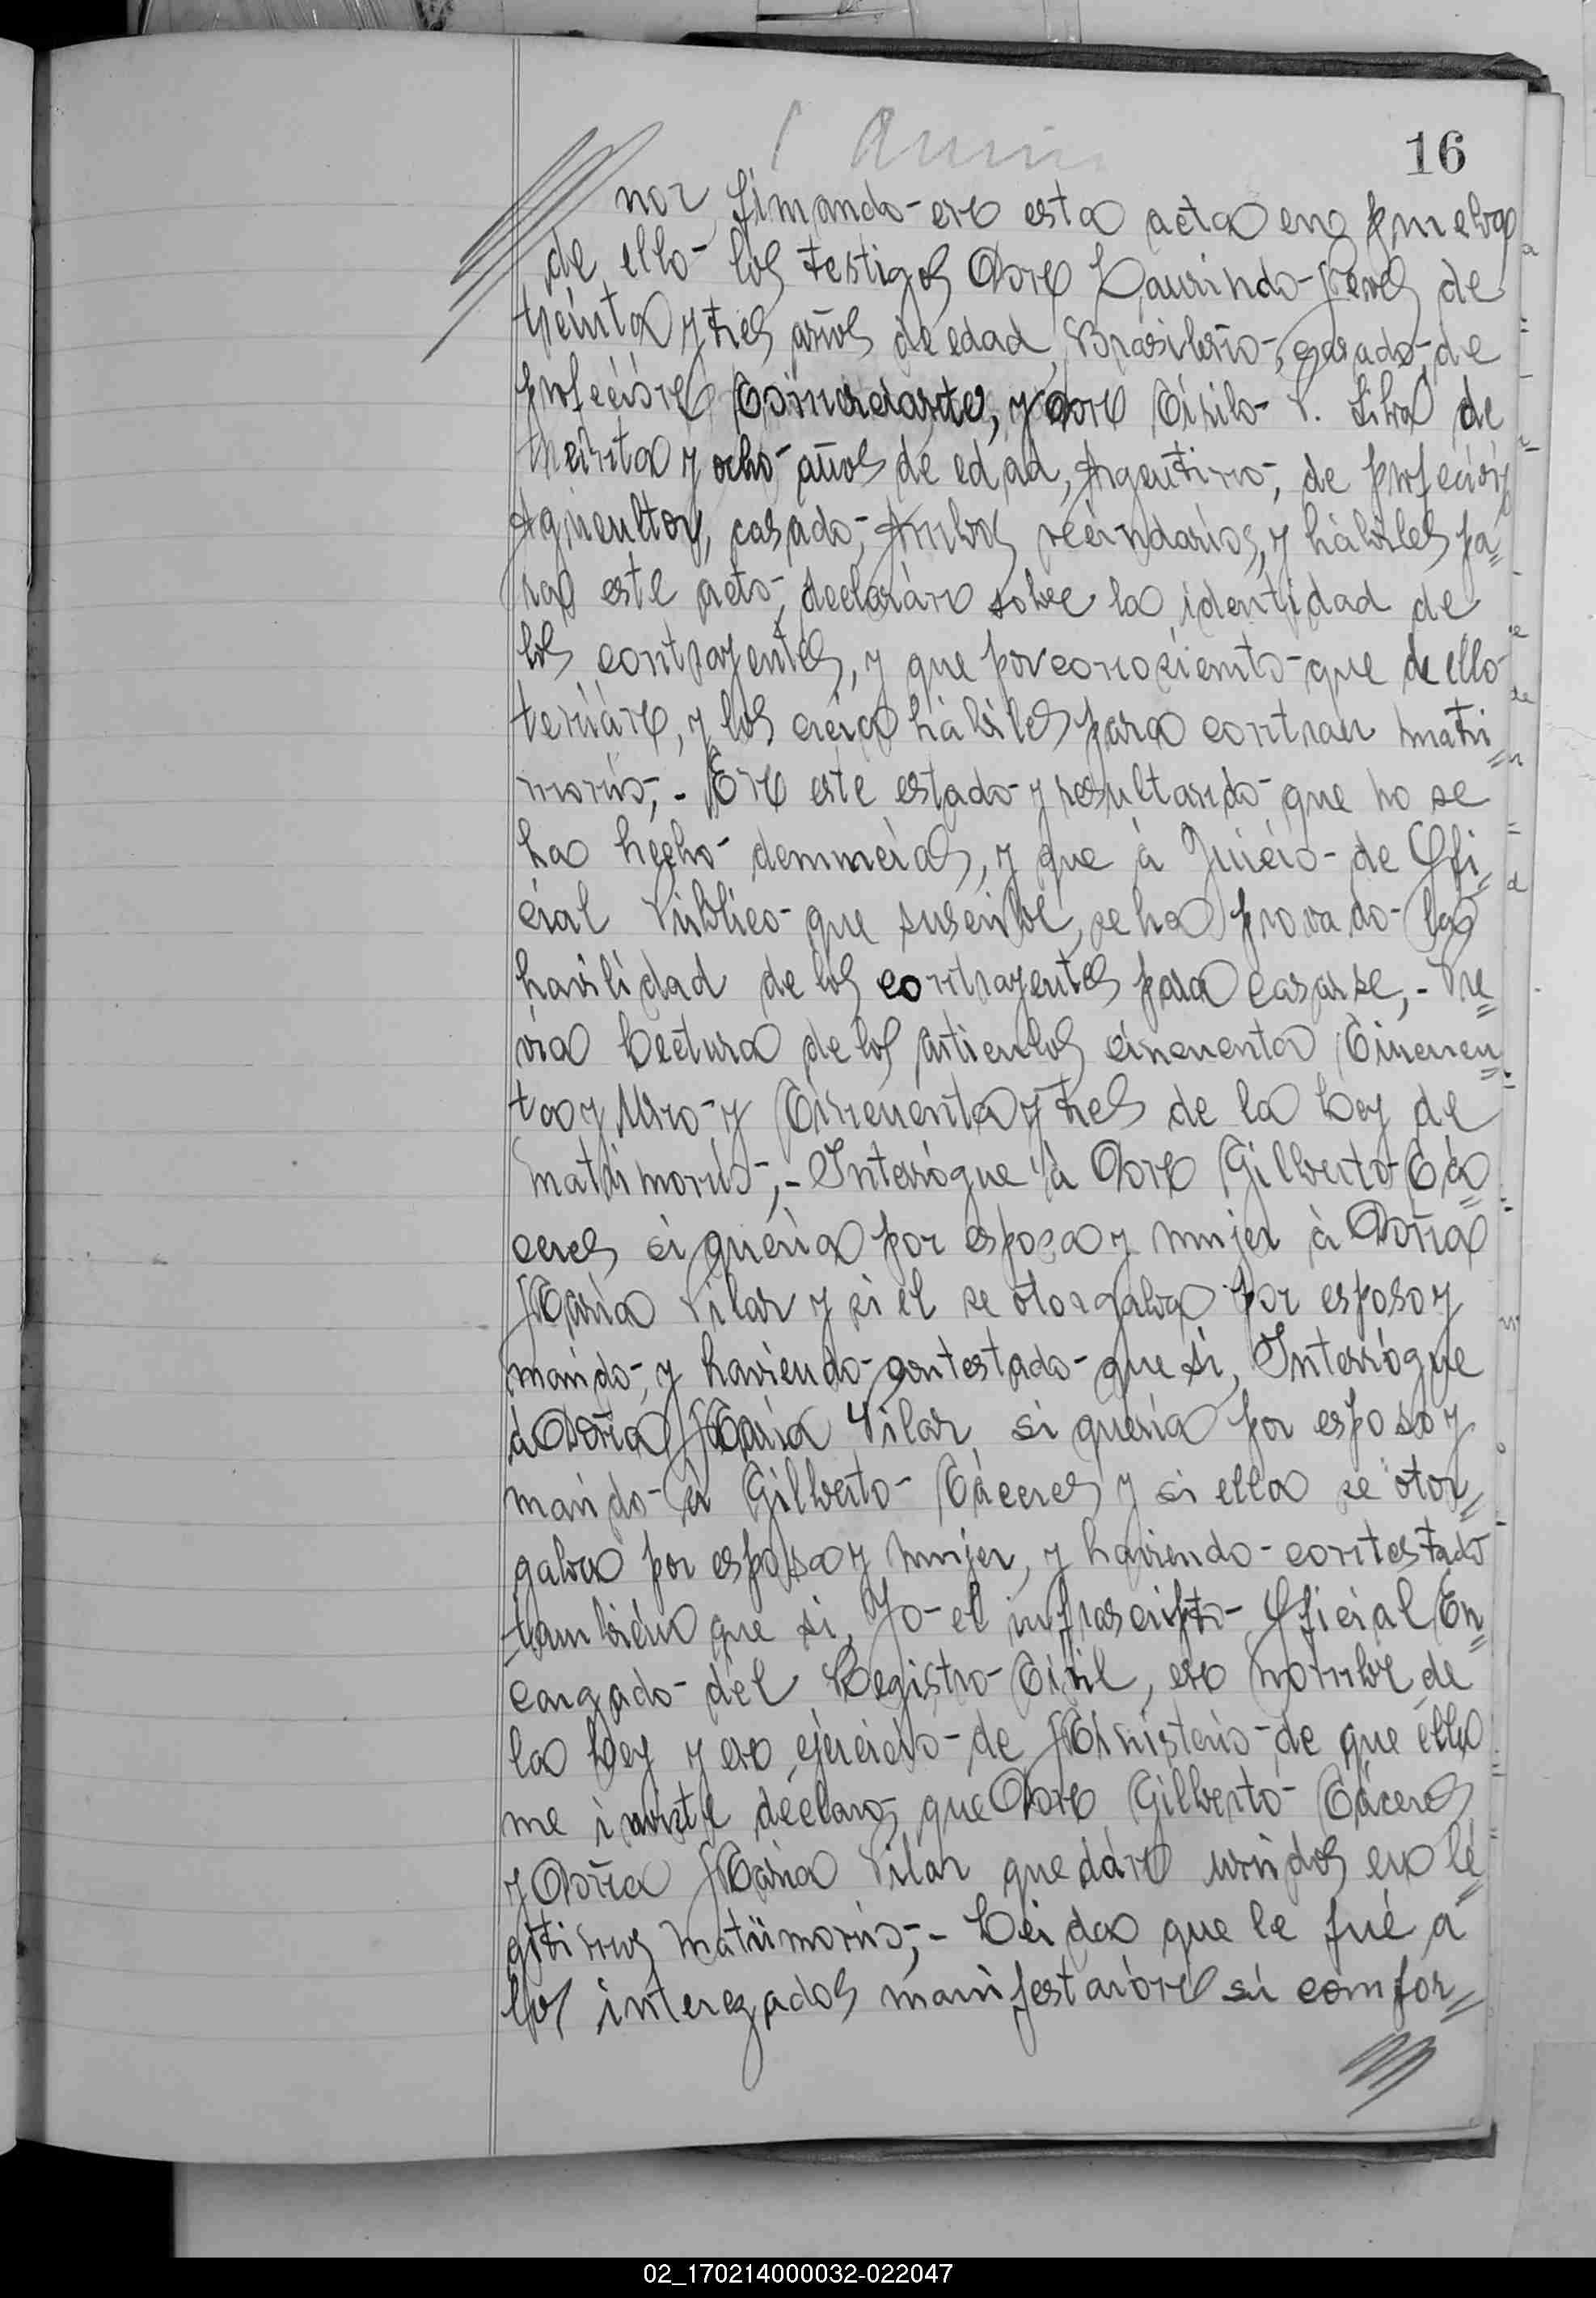 16
nor, fimando en esta acta en prueba
de ello los testigos Don Laurindo Peres de
treinta y tres años de edad, Brasileño, casado, de
profeción Comerciante, y Don Cirilo P. Silva de
treinta y ocho años de edad, Argentino, de profeción
Agricultor, casado, Ambos vecindarios, y hàbiles pa=
ra este acto, declaràn sobre la identidad de
los contrayentes, y que por conociento que de ello
teniàn, y los creía hàbiles para contraer matri=
monio,- En este estado y resultando que no se
ha hecho denuncias, y que à Juicio de Ofi=
cial Público que suscribe, se ha provado la
havilidad de los contrayentes para casarse,- Pre=
via Lectura de los articulos cincuenta Cincuen=
ta y Uno y Cincuenta y tres de la Ley de
matrimonio,- Interrògue à Don Gilberto Cà=
ceres si quería por esposa y mujer à Doña
Maria Pilar y si èl se otorgaba por esposo y
marido, y haviendo contestado que si, Interrògue
à Doña Maria Pilar, si quería por esposo y
marido à Gilberto Càceres y si ella se otor=
gaba por esposa y mujer, y haviendo contestado
tambièn que si, Yo el infrascripto Oficial En=
cargado del Registro Civil, en nombre de
la Ley y en ejercicio de Ministerio de que ella
me inviste declaro, que Don Gilberto Càceres
y Doña Maria Pilar quedàn unidos en le=
gitimos matrimonio,- Leida que le fuè a
los interezados manifestaròn si comfor=
02_170214000032-022047